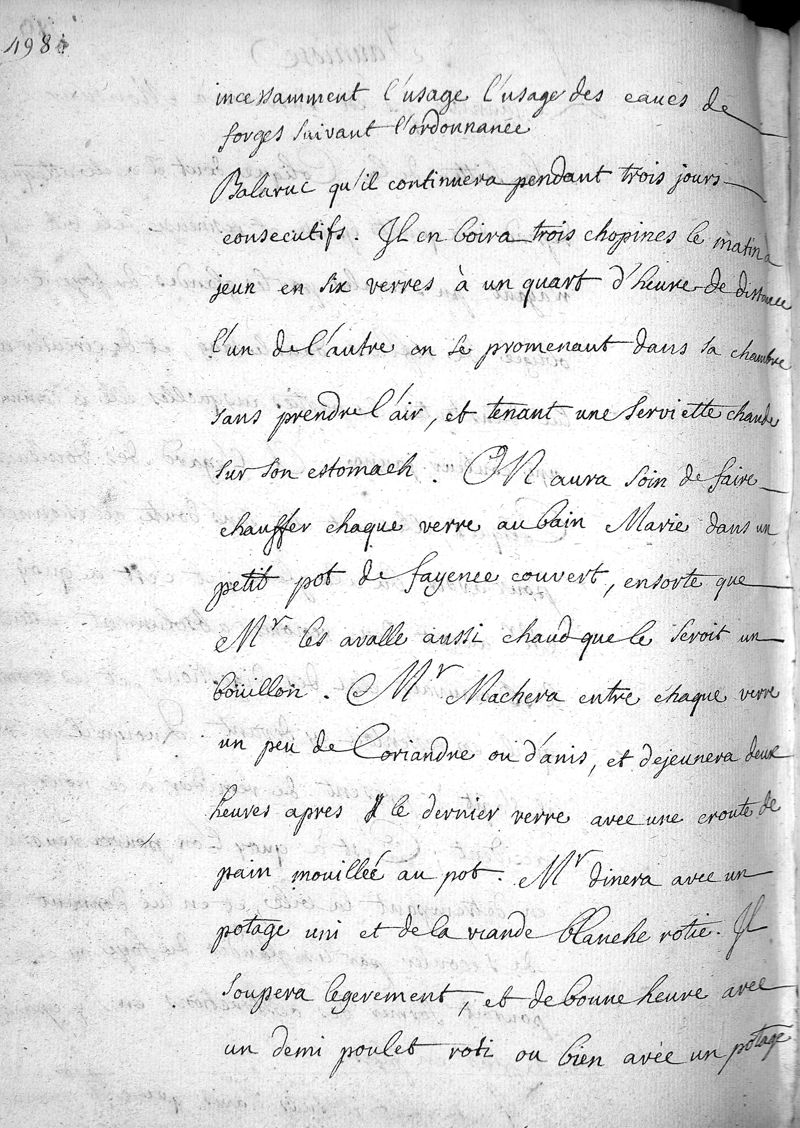 498
incessamment l'usage l'usage des eaues de
forges suivant l'ordonnance
Balaruc qu'il continuera pendant trois jours
consecutifs. Il en boira trois chopines le matin a
jeun en six verres à un quart d'heure de distance
l'un de l'autre en se promenant dans sa chambre
sans prendre l'air, et tenant une serviette chaude
sur son estomach. On aura soin de faire
chauffer chaque verre au bain Marie dans un
petit pot de fayence couvert, ensorte que
Mr les avalle aussi chaud que le seroit un
boüillon. Mr Machera entre chaque verre
un peu de Coriandre ou d'anis, et dejeunera deux
heures apres le dernier verre avec une croute de
pain mouilleé au pot. Mr dinera avec un
potage uni et de la viande blanche rotie. Il
soupera legerement, et de bonne heure avec
un demi poulet roti ou bien avec un potage